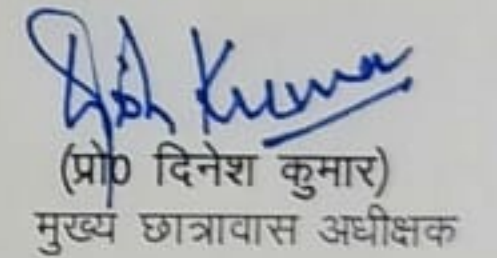 Kumar
(प्रो0 दिनेश कुमार)
मुख्य छात्रावास अधीक्षक